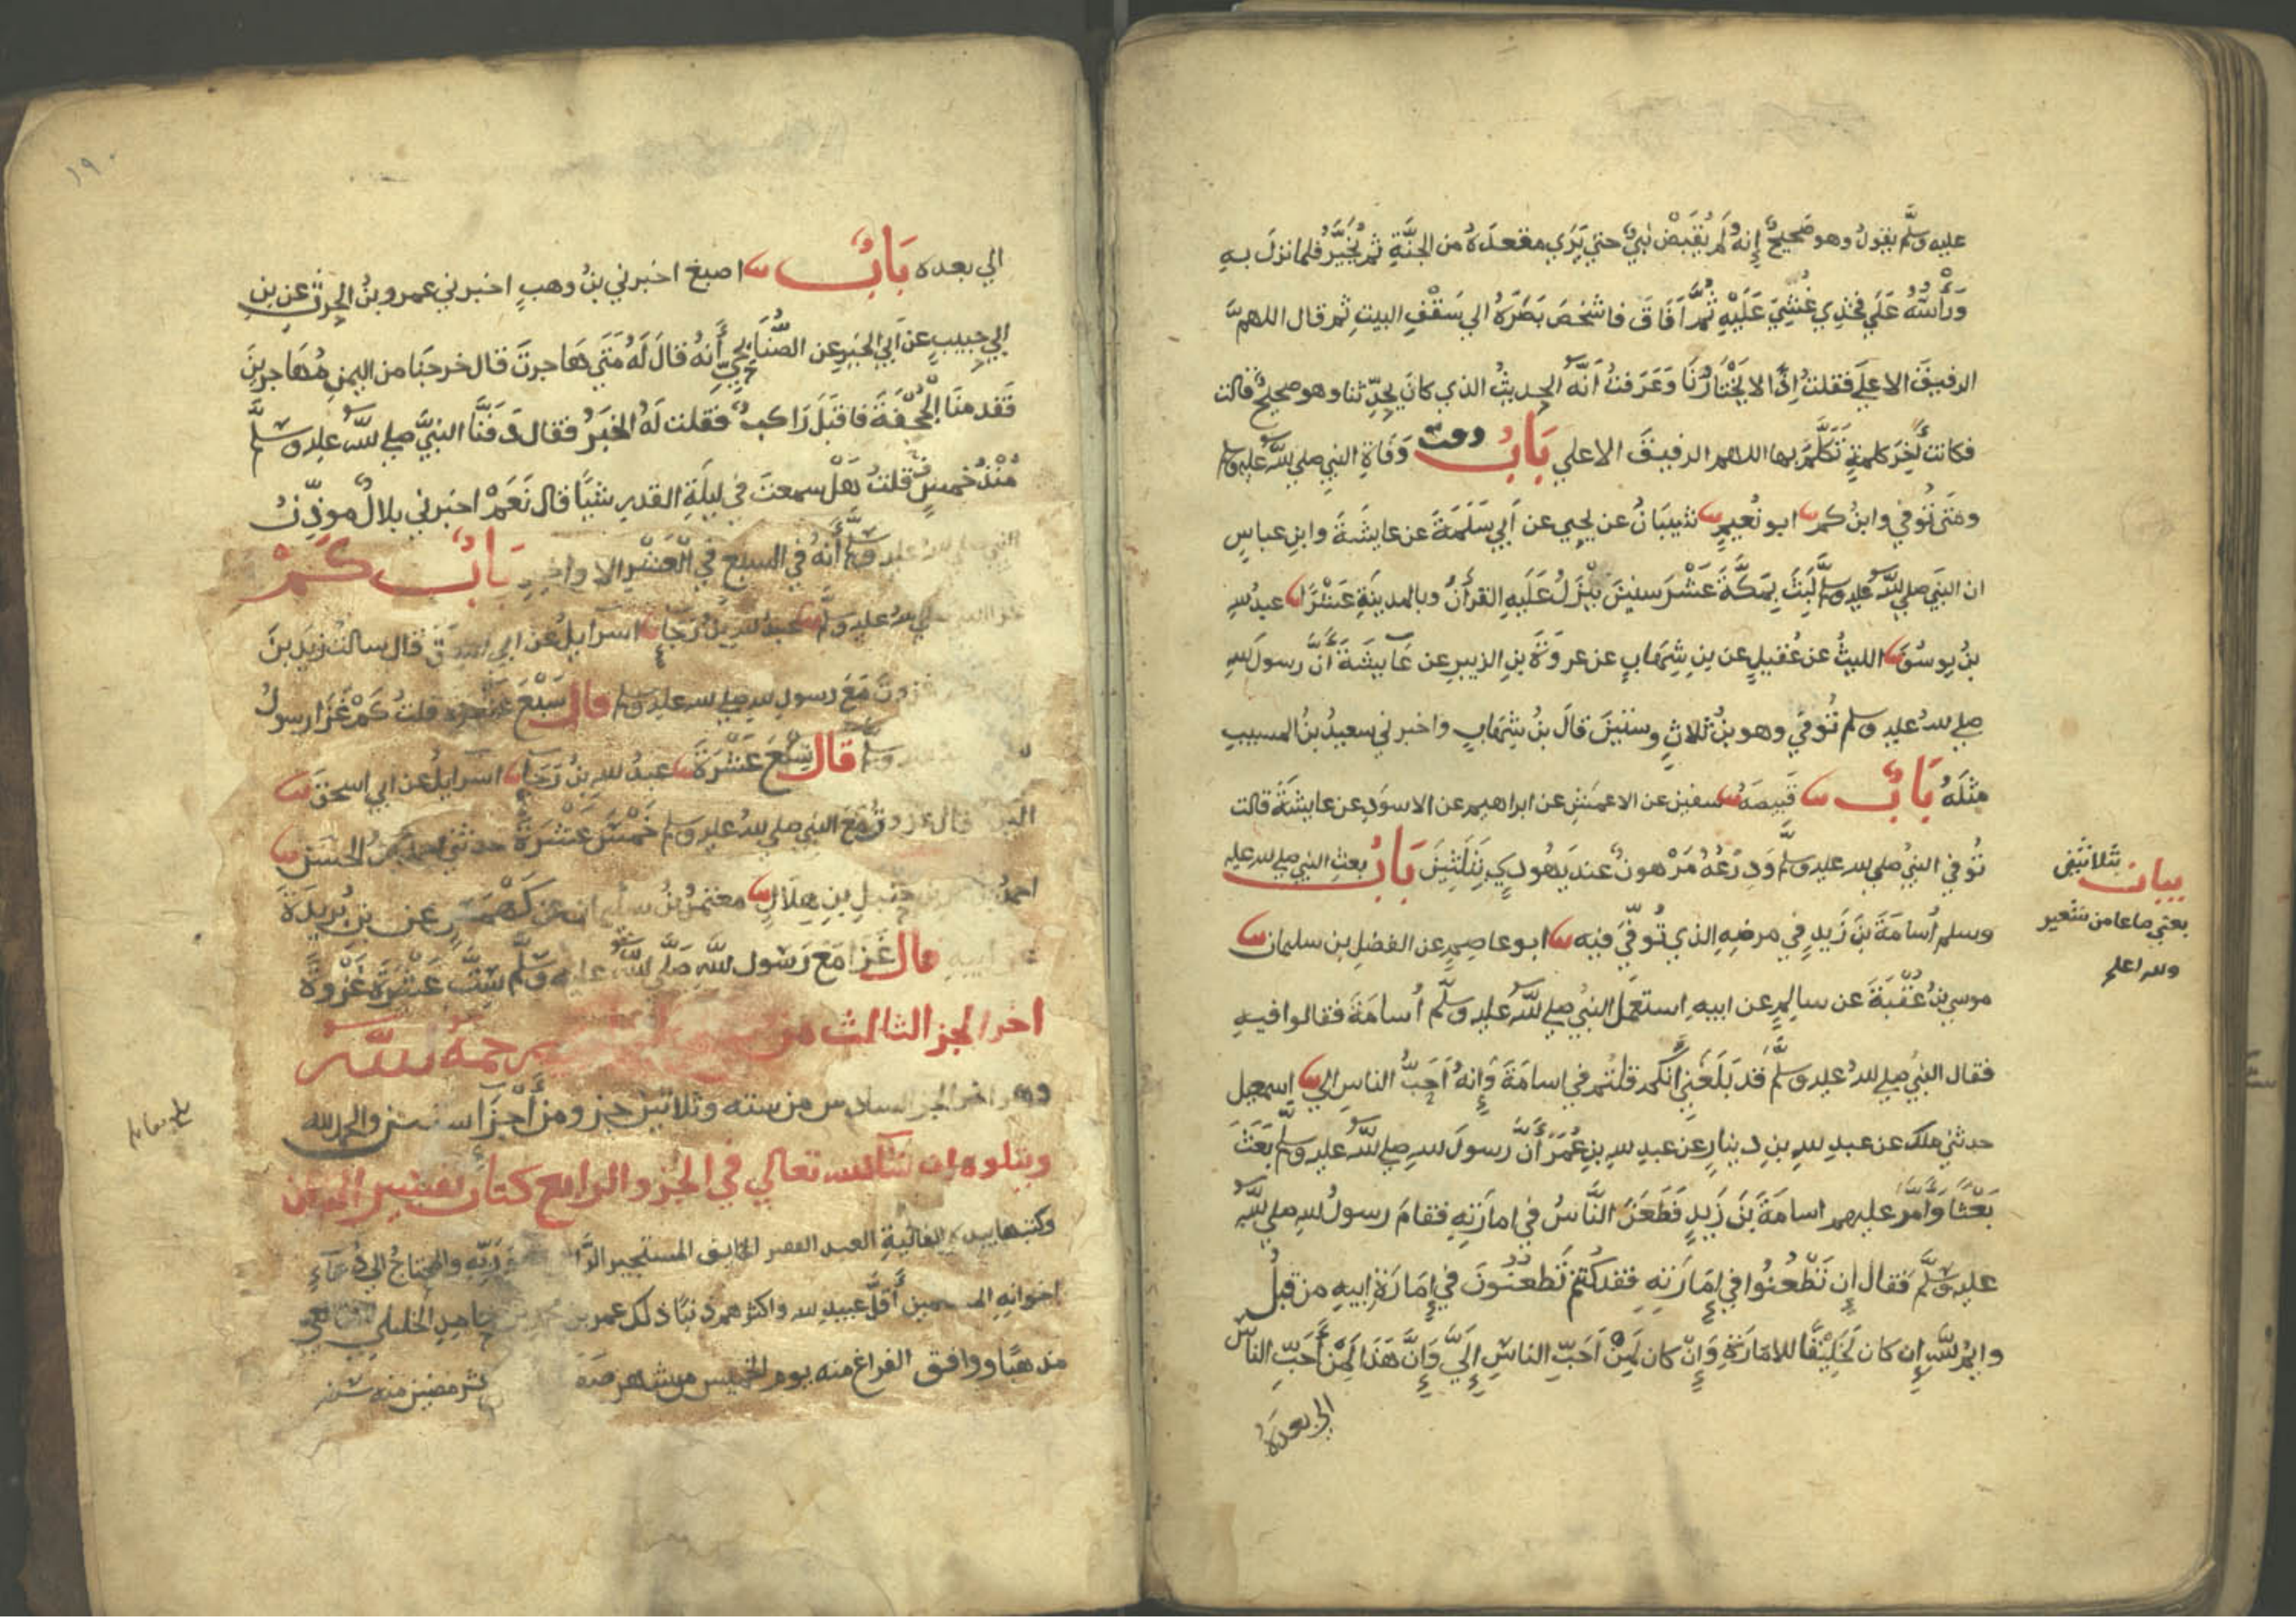 عليه وسلم يقول وهو صحيح إنه لم يُقبض نبي حتي يَرَي مقعدَهُ من الجنَّةِ ثم يُخَيَّرُ فلما نزلَ به
وَرَأْسُهُ عَلَي فخذِي غُشِيَ عَلَيْهِ ثُمَّ اَفَاقَ فاشخَصَ بَصَرَهُ الي سَقْفِ البيتِ ثم قال اللهمَّ
الرفيقَ الاعلَي فقلتُ إذًا لا يَخْتَارُنَا وَعَرَفتُ أنَّه الحديثُ الذي كانَ يحدّثنا وهو صحيح قالت
فكانت آخِرَ كلمةٍ تَكَلَّمَ بها اللهم الرفيقَ الاعلي بَابُ وَفَاةِ النبي صلي الله عليه وسلم
ومَتَي تُوفي وابنُ كم ابو نُعيمٍ شيبَانُ عن يحيي عن أبي سَلَمَةَ عن عايشَةَ وابنِ عباسٍ
ان النبي صلي الله عليه وسلم لَبِثَ بِمَكَّةَ عَشْرَ سنينَ يُنْزَلُ عَلَيهِ القرأنُ وبالمدينَةِ عَشْرًا عبدُ الله
بنُ يوسُفَ الليثُ عن عُقيلٍ عن بنِ شِهَابٍ عن عروَةَ بنِ الزبيرِ عن عَايشَةَ أنَّ رسولَ الله
صلي الله عليه وسلم تُوفيَ وهو بنُ ثلاثٍ وستينَ قالَ بنُ شِهَابٍ واخبرني سعيدُ بنُ المسيبِ
مثلَهُ بَابٌ قَبِيصَهُ سفين عن الاعمشِ عن ابراهيم عن الاسوَدِ عن عايشةَ قالت
تُوفي النبيُّ صلي الله عليه وسلم وَدِرْعُهُ مَرْهونٌ عند يَهُودي بثلثينَ بَابُ بعثِ النبي صلي الله عليه
وسلم أسَامَةَ بنَ زَيدٍ في مرضِهِ الذي تُوفّيَ فيه ابو عاصمٍ عن الفضلِ بن سليمان
موسي بنُ عُقْبَةَ عن سالمٍ عن ابيهِ استعمَلَ النبيُ صلي الله عليه وسلّم أُسامَةَ فقالوا فيهِ
فقال النبيُ صلي الله عليه وسلّم قد بَلَغَنِي أنكم قلتُم في اسامَةَ وَإنهُ أحَبُّ الناسِ الي اسمعيل
حدثني ملك عن عبدِ الله بنِ دينارٍ عن عبدِ الله بنِ عُمَرَ أنَّ رسولَ الله صلي الله عليه وسلّم بَعَثَ
بَعْثًا وَأمَّرَ عليهم اسامَةَ بنَ زَيدٍ فَطَعَنَ النَّاسُ في امارَتِهِ فقامَ رسولُ الله صلي الله
عليه وسَلّم فقال إن تَطْعُنُوا في إمَارَتِهِ فقد كُنتم تَطعنُونَ في إمَارَة ابيهِ من قَبلُ
وايمُ اللهِ إن كان لَخَلِيقًا للامَارَةِ وَإن كان لَمِنْ أحَبِّ الناسِ إلَيَّ وَإنَّ هَذا لَمِنْ أحَبِّ الناسِ
الي بعدَهُ
بيان بثلاثين
يعني صاعا من شعير
والله اعلم
١٩٠
الي بعده بَابٌ اصبغ اخبرني بنُ وهبٍ اخبرني عمرو بنُ الحرثِ عن بنِ
ابي حبيبٍ عن أبي الخيرِ عن الصُّنَابِحِيِّ أنهُ قالَ لَهُ مَتَي هَاجرتَ قال خرجنَا من اليمنِ مُهَاجرينَ
فَقَدِمنَا الجُحْفَةَ فاقبَلَ رَاكبٌ فقلت لَهُ الخبَرُ فقال دَفَنَّا النبيَّ صلي الله عليه وسلم
مُنْذُ خمسٍ قلتُ هَلْ سمعتَ في ليلَةِ القدرِ شيًا قال نَعَمْ اخبرني بلالٌ موذِّنُ
النبي صلي الله عليه وسلم أنَّهُ في السبعِ في العَشْرِ الاواخِرِ بَابٌ كَمْ
غزا النبي صلي الله عليه وسلم عبدُ اللهِ بنُ رَجَا اسرايلُ عن ابي اسحقَ قال سالتُ زيدَ بنَ
غزوتَ مَعَ رسولِ الله صلي الله عليه وسلم قال سَبْعَ عَشْرَةَ قلتُ كَمْ غَزَا رسولُ
قال تِسْعَ عَشْرَةَ عبدُ الله بنُ رَجَا اسرايلُ عن ابي اسحقَ
قال غزوتُ مَعَ النبي صلي الله عليه وسلم خَمْسَ عَشْرَةَ حدثني احمدُ بنُ الحسَنِ
احمدُ بن حنبلِ بنِ هِلَالٍ معتمرُ بنُ سليمان عن كَهْمَسٍ عن بنِ بُرَيدَةَ
عن ابيهِ قال غَزَا مَعَ رَسُولِ اللهِ صَلَّي الله عليهِ وَسَلَّم سِتَّ عَشْرَةَ غَزْوَةً
اخر الجز الثالث من رحمه الله
وهو اخر الجز السادس من سته وثلاثين جز ومن أجزا ستين والحمد لله
ويتلوه ان شا الله تعالي في الجزو الرابع كتاب تفسير القران
وكتبها بيده الفانية العبد الفقير الخايف المستجير ربّه والمحتاجُ الي دُعَاءِ
اخوانهِ المسلمين أقلُّ عبيدِ الله واكثرهم ذنبًا ذلك عمر بن الخليلي
مذهبًا ووافق الفراغ منه يوم الخميس من شهر